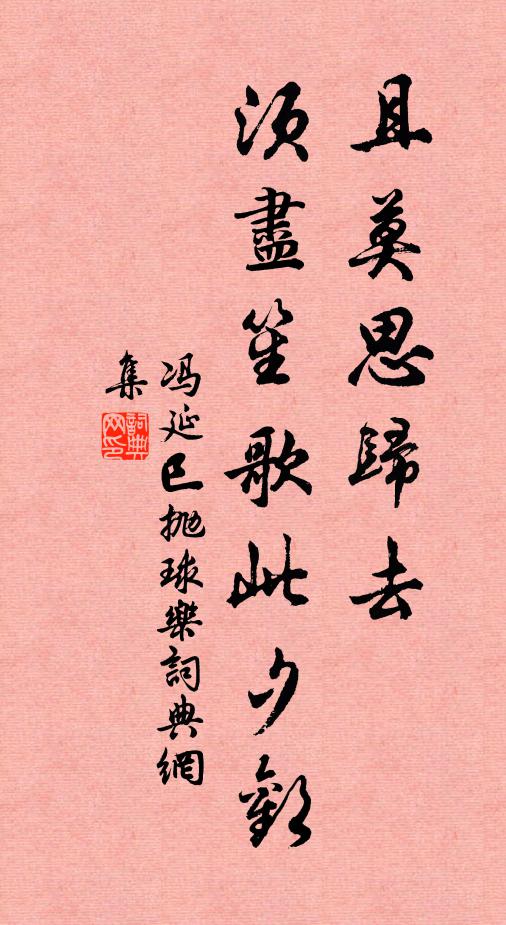 且莫思歸去
須盡笙歌此夕歡
冯延巳抛球樂詞典網
集
詞典
网印